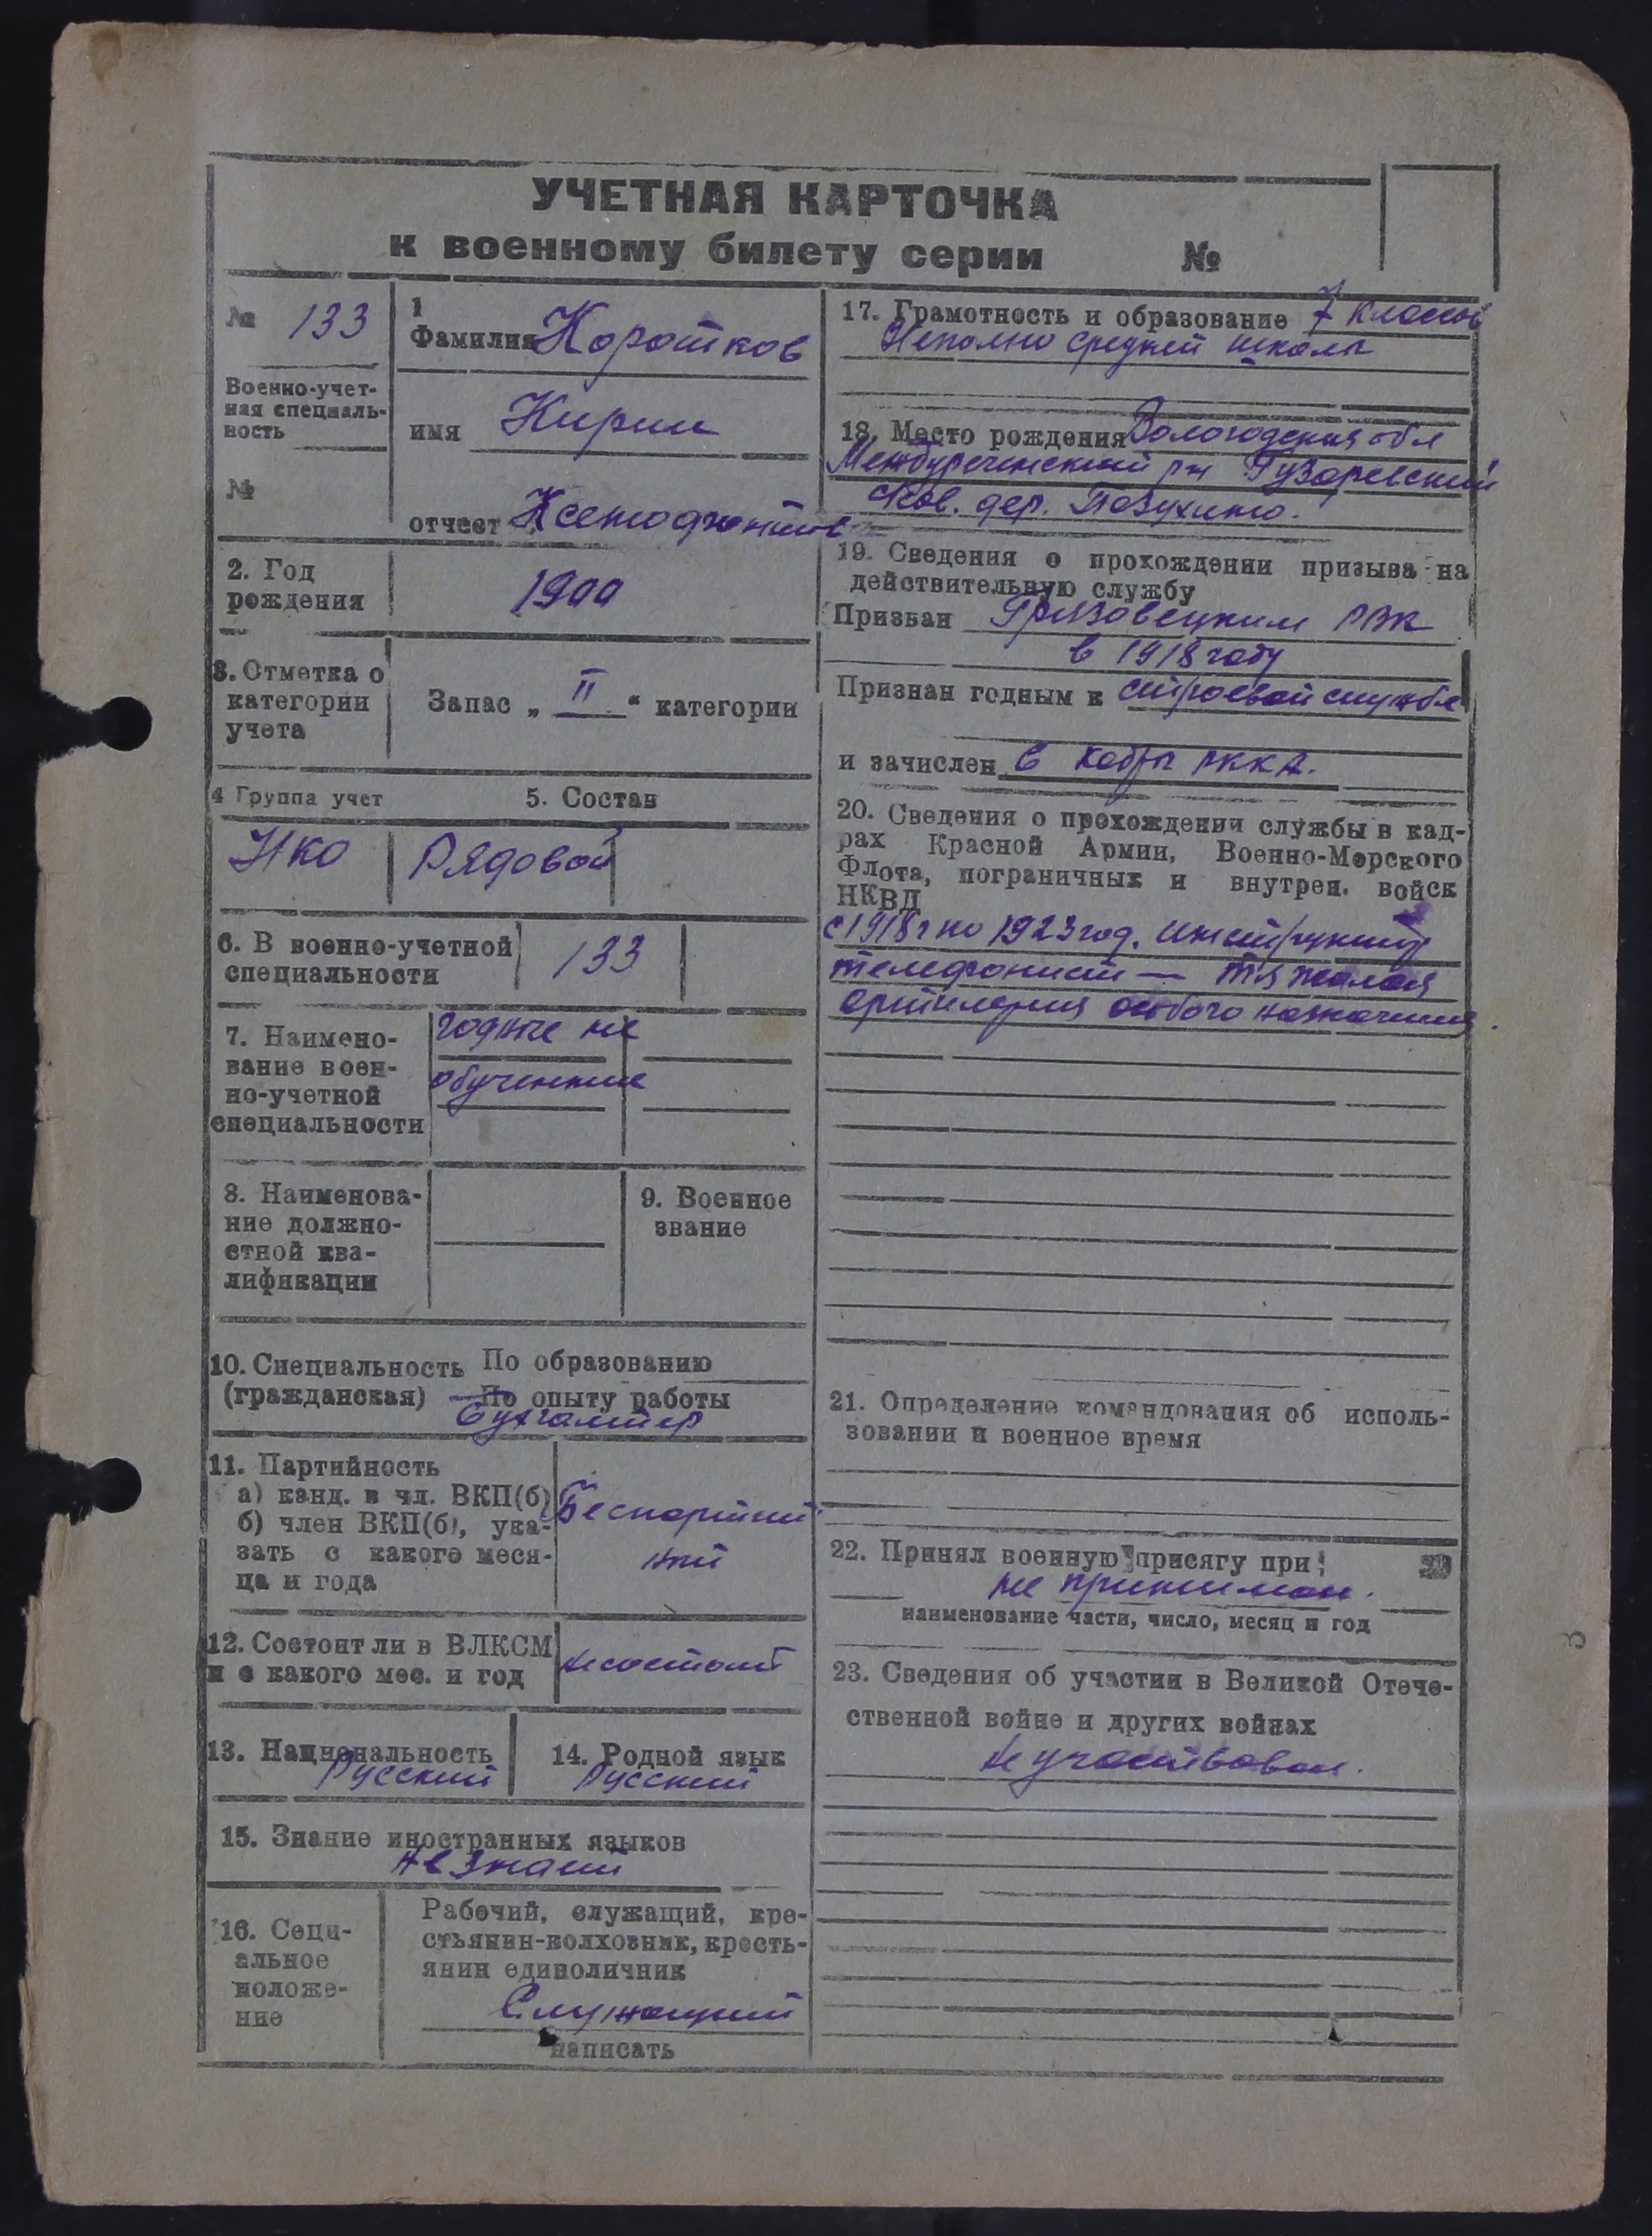 УЧЕТНАЯ КАРТОЧКА
к военному билету серии №
№ 133
Военно-учет-
ная специаль-
ность
№
1
Фамилия Коротков
имя Кирил
отчест Ксенофонтов
2. Год
рождения
1900
3. Отметка о
категории
учета
Запас „ II “ категории
4 Группа учет
5. Состав
НКО
Рядовой
6. В военно-учетной
специальности
133
7. Наимено-
вание воен-
но-учетной
специальности
годные не
обученные
8. Наименова-
ние должно-
стной ква-
лификации
9. Военное
звание
10. Специальность По образованию
(гражданская) По опыту работы
бухгалтер
11. Партийность
а) канд. в чл. ВКП(б)
б) член ВКП(б), ука-
зать с какого меся-
ца и года
Беспартий
ный
12. Состоит ли в ВЛКСМ
и с какого мес. и год
не состоит
13. Национальность
Русский
14. Родной язык
Русский
15. Знание иностранных языков
не знает
16. Соци-
альное
положе-
ние
Рабочий, служащий, кре-
стьянин-колхозник, кресть-
янин единоличник
Служащий
написать
17. Грамотность и образование 7 классов
Неполно средней школы
18. Место рождения Вологодская обл
Междуреченский р-н Гузаревский
с/сов. дер. Позухино.
19. Сведения о прохождении призыва на
действительную службу
Призван Грязовецким РВК
в 1918 году
Признан годным к строевой службе
и зачислен в кадры РККА.
20. Сведения о прохождении службы в кад-
рах Красной Армии, Военно-Морского
Флота, пограничных и внутрен. войск
НКВД
с 1918 г по 1923 год. инструктор
телефонист — тяжелая
артилерия особого назначения.
21. Определение командования об исполь-
зовании и военное время
22. Принял военную присягу при:
не принимал.
наименование части, число, месяц и год
23. Сведения об участии в Великой Отече-
ственной войне и других войнах
не участвовал.
3